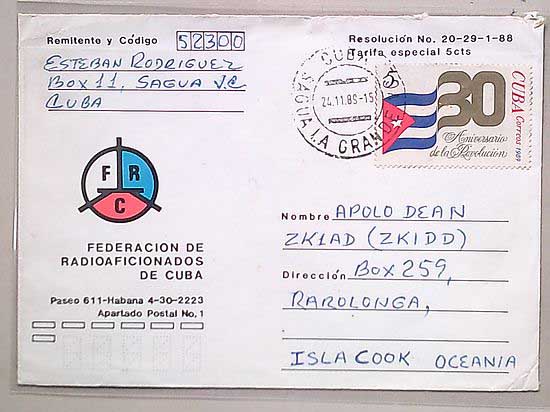 Remitente y Código 52300
ESTEBAN RODRIGUEZ
BOX 11, SAGUA V.C
CUBA
Resolución No. 20-29-1-88
Tarifa especial 5cts
CUBA
24.11.89-15
SAGUA LA GRANDE
5
30
Aniversario
de la Revolución
CUBA Correos 1989
F R
C
FEDERACION DE
RADIOAFICIONADOS
DE CUBA
Paseo 611-Habana 4-30-2223
Apartado Postal No. 1
Nombre APOLO DEAN
ZK1AD (ZK1DD)
Dirección BOX 259,
RAROLONGA,
ISLA COOK OCEANIA